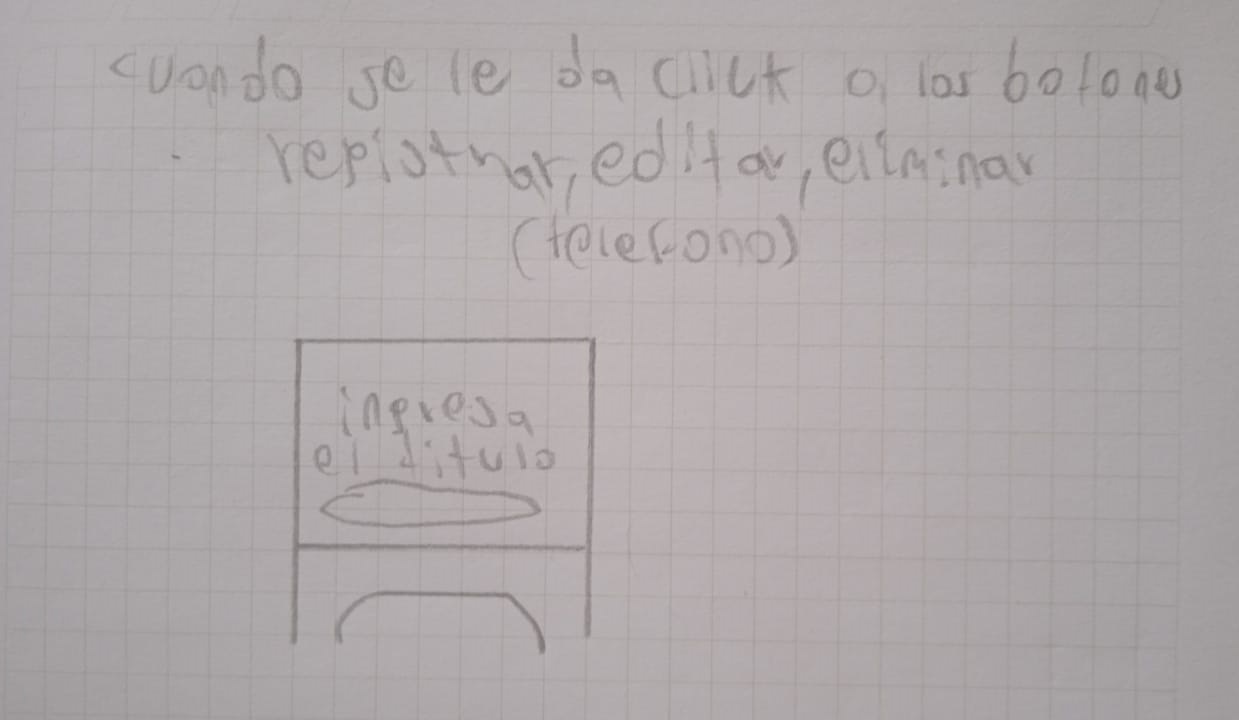 cuando se le da click a los botones
registrar, editar, eliminar
(telefono)
ingresa
el titulo